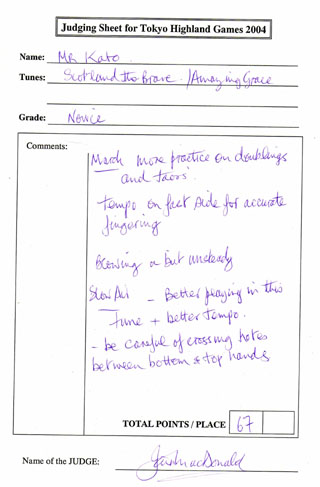 Judging Sheet for Tokyo Highland Games 2004
Name: Mr Kato
Tunes: Scotland the Brave / Amazing Grace
Grade: Novice
Comments:
March more practice on doublings
and taors.
Tempo on fast side for accurate
fingering
Blowing a bit unsteady
Slow Air - Better playing in this
Tune + better tempo.
- be careful of crossing notes
between bottom & top hands
TOTAL POINTS / PLACE 67
Name of the JUDGE: MacDonald